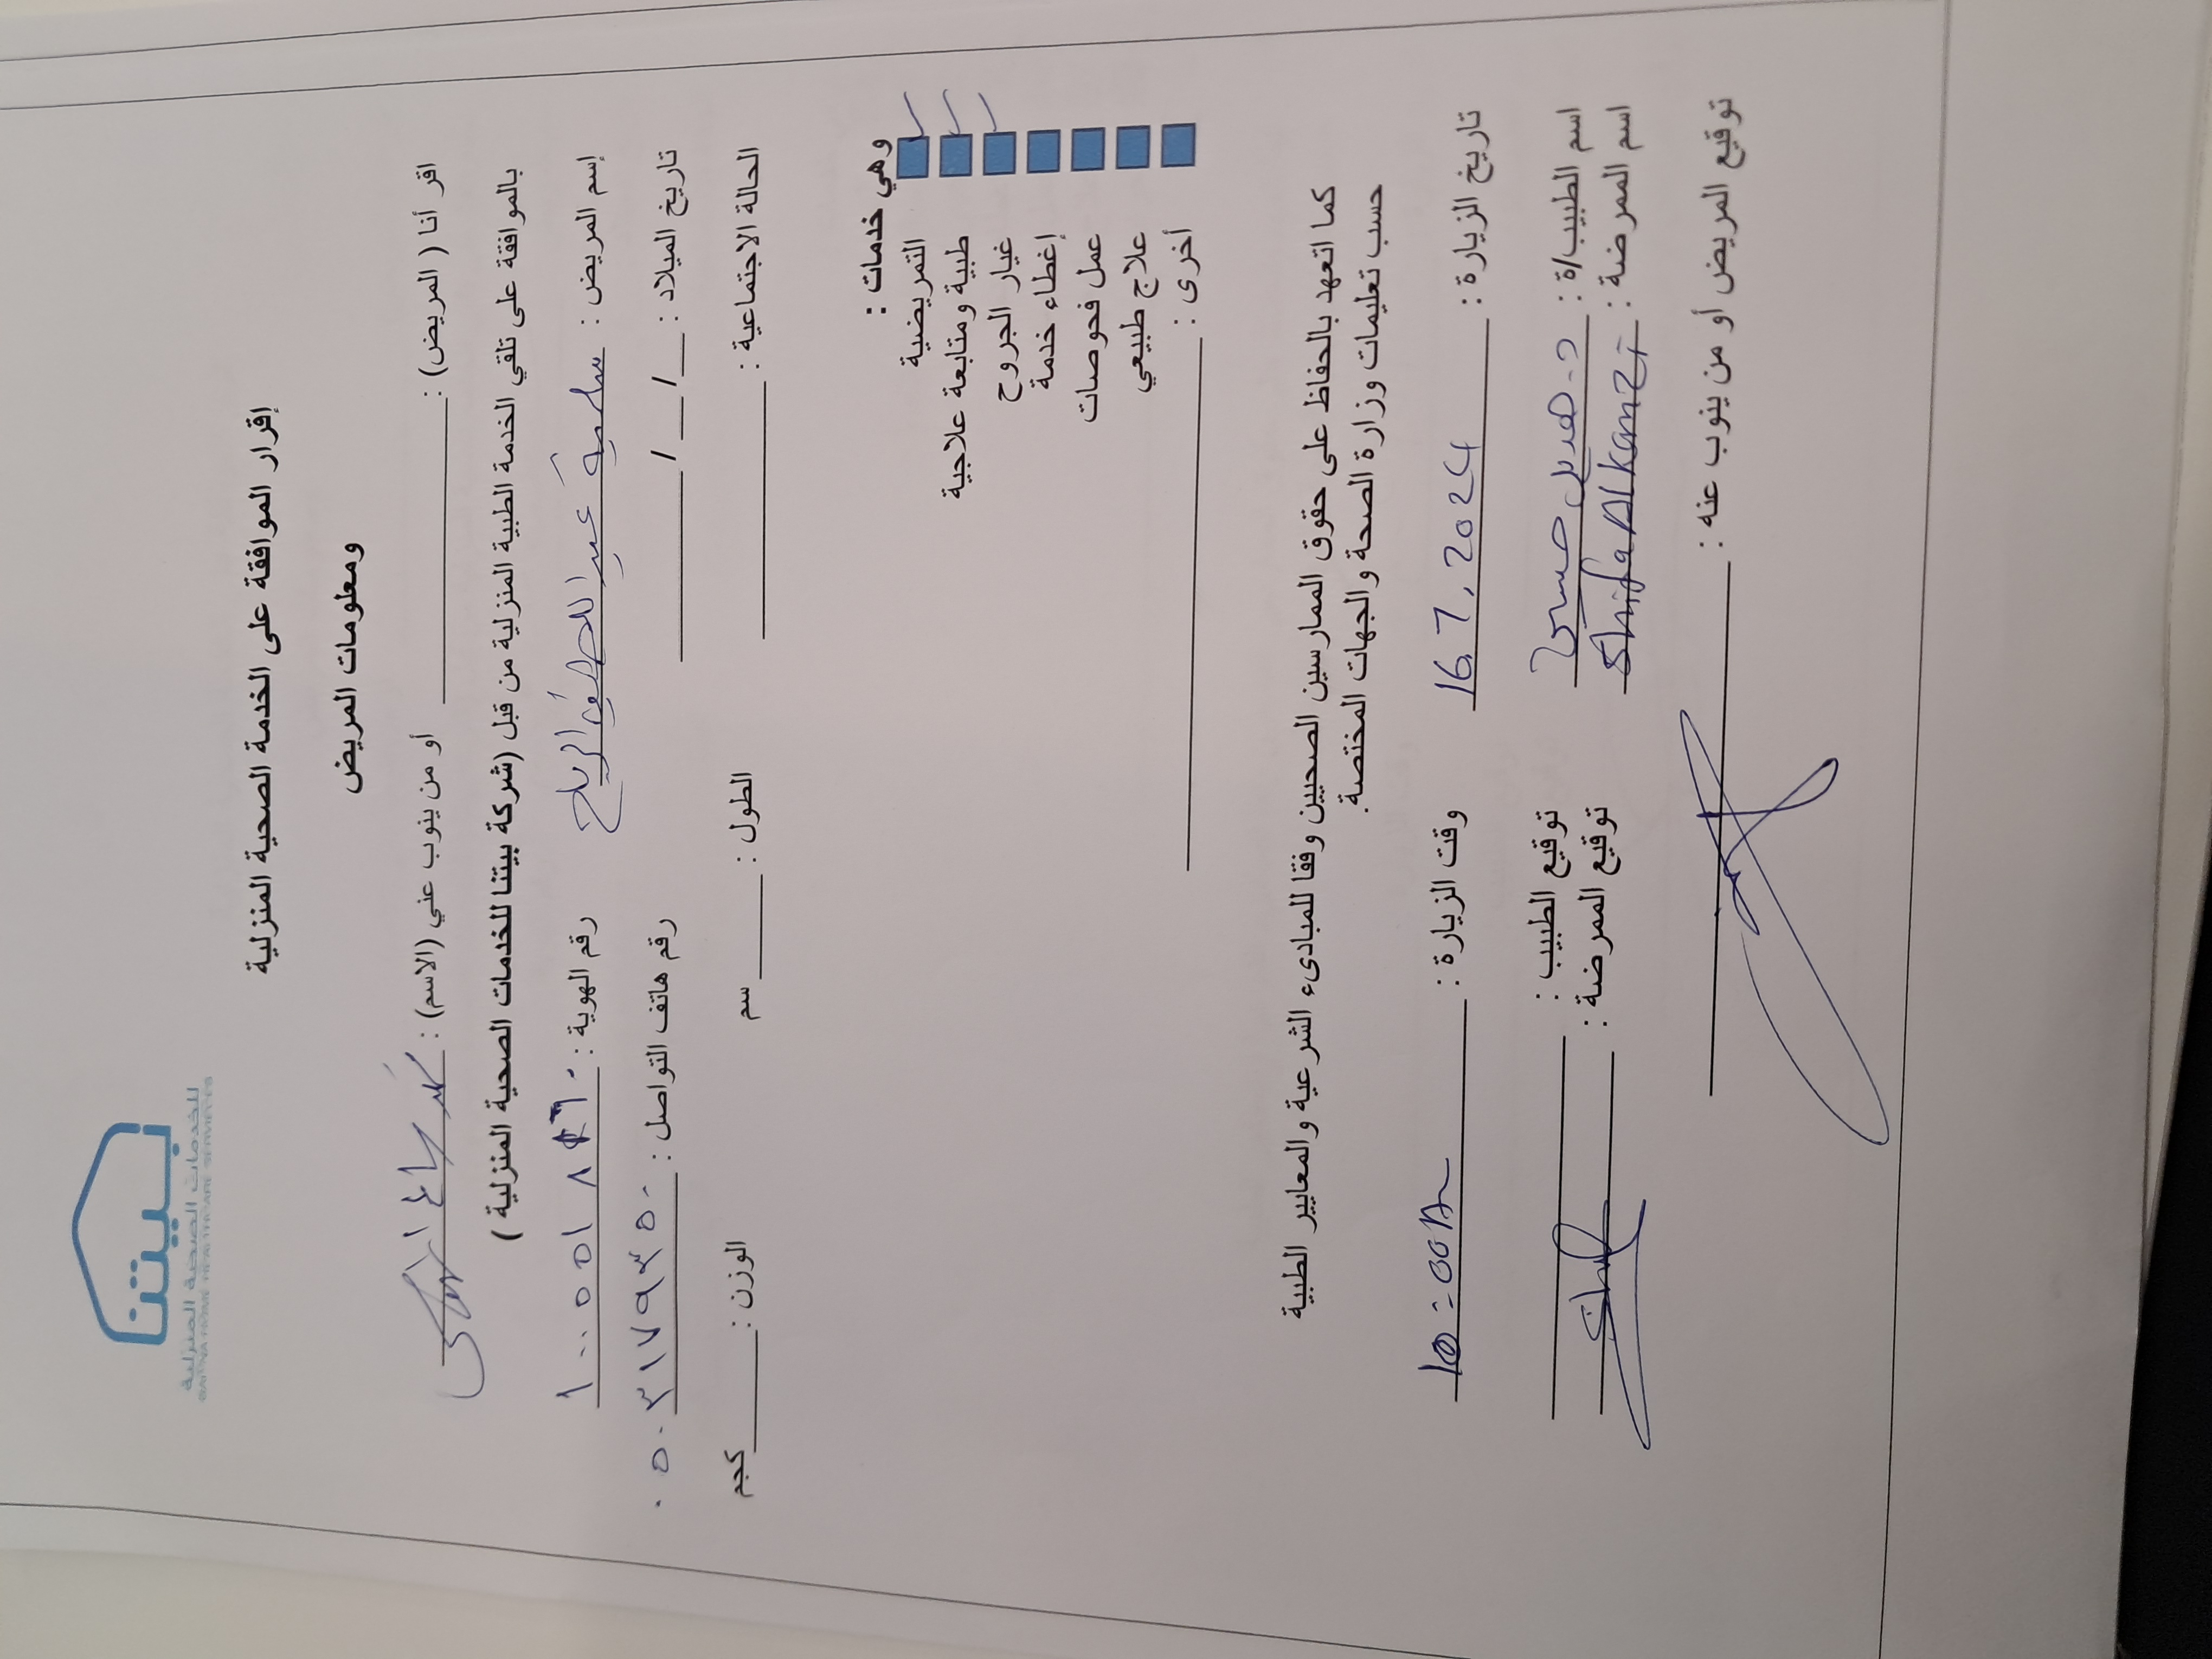 بيتنا
للخدمات الصحية المنزلية
BAITNA HOME HEALTHCARE SERVICES
إقرار الموافقة على الخدمة الصحية المنزلية
ومعلومات المريض
اقر أنا ( المريض) : ____________ أو من ينوب عني (الاسم) :
بالموافقة على تلقي الخدمة الطبية المنزلية من قبل (شركة بيتنا للخدمات الصحية المنزلية )
إسم المريض : عبد اللطيف رقم الهوية :
تاريخ الميلاد : __/ __/ ____ رقم هاتف التواصل : ٠٥٠٣١٧٩٣٥٠
الحالة الاجتماعية : ____________ الطول : _____ سم الوزن : _____ كجم
وهي خدمات :
التمريضية
طبية ومتابعة علاجية
غيار الجروح
إغطاء خدمة
عمل فحوصات
علاج طبيعي
أخرى : ____________
كما اتعهد بالحفاظ على حقوق الممارسين الصحيين وفقا للمبادىء الشرعية والمعايير الطبية
حسب تعليمات وزارة الصحة والجهات المختصة.
تاريخ الزيارة : 16.7.2024 وقت الزيارة : 10:00A
اسم الطبيب/ة : د. هديل حسين توقيع الطبيب :
اسم الممرضة : Shifa Alkamzi توقيع الممرضة :
توقيع المريض أو من ينوب عنه :